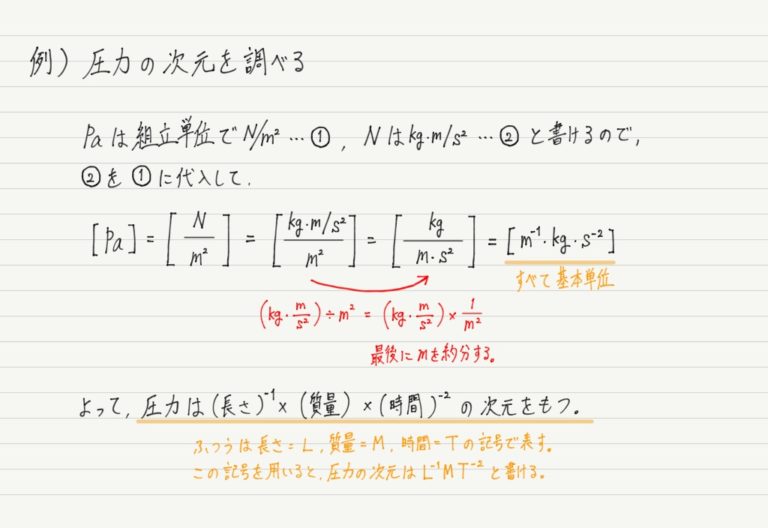 例) 圧力の次元を調べる
Paは組立単位でN/m² … ①, Nはkg·m/s² … ② と書けるので,
②を①に代入して.
[Pa] = [N/m²] = [(kg·m/s²)/m²] = [kg/(m·s²)] = [m⁻¹·kg·s⁻²]
すべて基本単位
(kg·m/s²)÷m² = (kg·m/s²)×1/m²
最後にmを約分する。
よって, 圧力は(長さ)⁻¹×(質量)×(時間)⁻²の次元をもつ。
ふつうは長さ=L, 質量=M, 時間=Tの記号で表す。
この記号を用いると, 圧力の次元はL⁻¹MT⁻²と書ける。